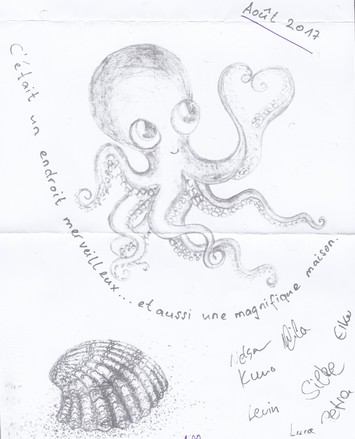 Août 2017
C'était un endroit merveilleux... et aussi une magnifique maison.
Kuno
Silke
Levin
Luca
Petra